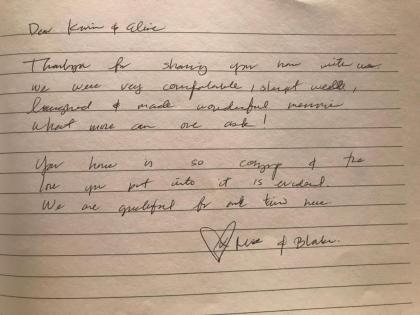 Dear Kevin & Aline
Thankyou for sharing your home with us
we were very comfortable, slept well,
laughed & made wonderful memories
what more can one ask!
Your home is so & the
love you put into it is evident.
We are grateful for our time here
& Blake.